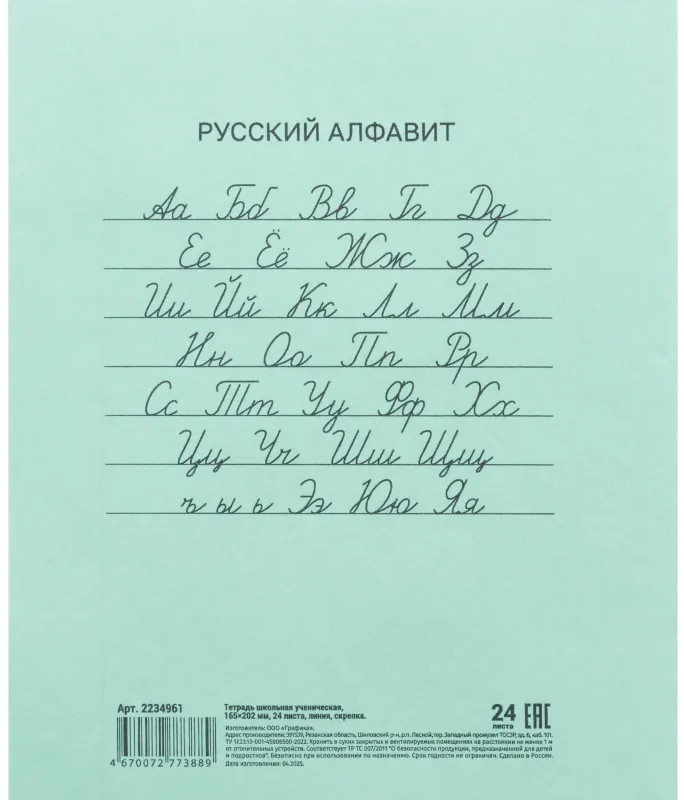 РУССКИЙ АЛФАВИТ
Аа Бб Вв Гг Дд
Ее Ёё Жж Зз
Ии Йй Кк Лл Мм
Нн Оо Пп Рр
Сс Тт Уу Фф Хх
Цц Чч Шш Щщ
ъ ы ь Ээ Юю Яя
Арт. 2234961
4 670072 773889
Тетрадь школьная ученическая,
165×202 мм, 24 листа, линия, скрепка.
Изготовитель: ООО «Графика».
Адрес производителя: 391539, Рязанская область, Шиловский р-н, р.п. Лесной, тер. Западный промузел ТОСЭР, зд. 6, каб. 101.
ТУ 17.23.13-001-45806500-2022. Хранить в сухих закрытых и вентилируемых помещениях на расстоянии не менее 1 м
от отопительных устройств. Соответствует ТР ТС 007/2011 "О безопасности продукции, предназначенной для детей
и подростков". Безопасно при использовании по назначению. Срок годности не ограничен. Сделано в России.
Дата изготовления: 04.2025.
24
листа
EAC